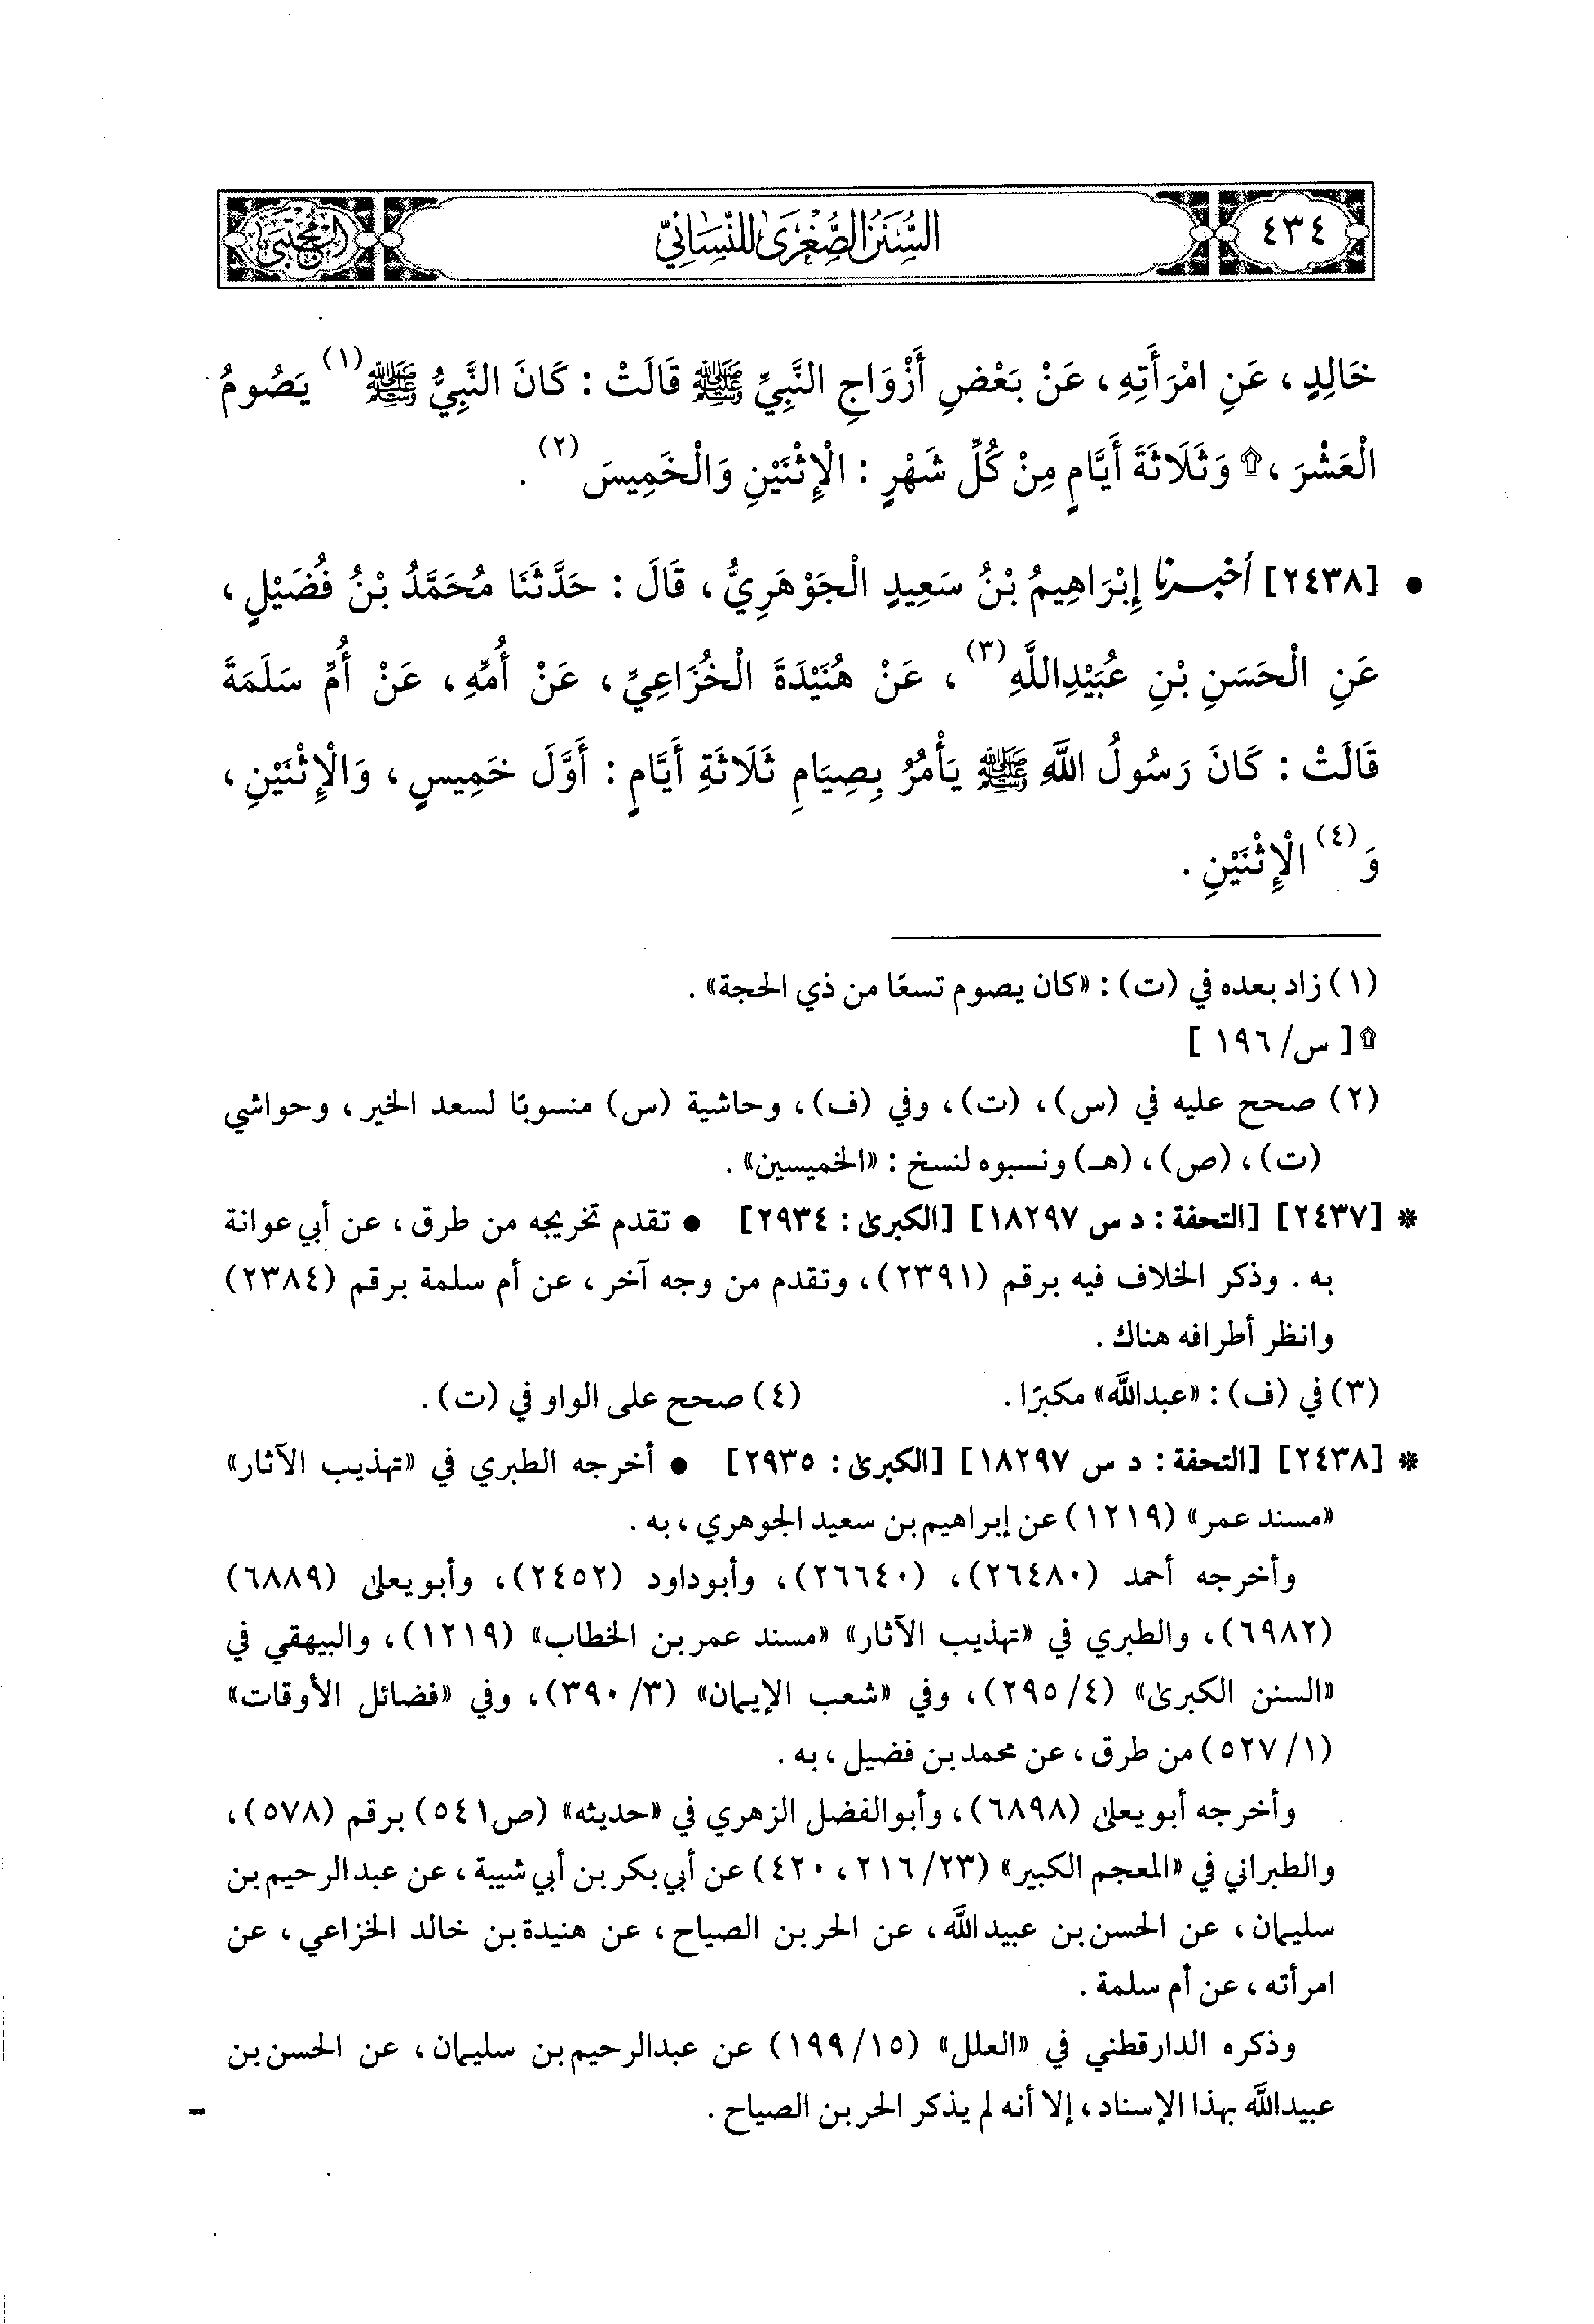 ٤٣٤
السُّنَنُ الصُّغْرَىٰ لِلنَّسَائِيِّ
المجتبى
خَالِدٍ ، عَنِ امْرَأَتِهِ ، عَنْ بَعْضِ أَزْوَاجِ النَّبِيِّ ﷺ قَالَتْ : كَانَ النَّبِيُّ ﷺ(١) يَصُومُ
الْعَشْرَ ، ۩ وَثَلَاثَةَ أَيَّامٍ مِنْ كُلِّ شَهْرٍ : الْإِثْنَيْنِ وَالْخَمِيسَ (٢) .
• [٢٤٣٨] أخبرنا إِبْرَاهِيمُ بْنُ سَعِيدٍ الْجَوْهَرِيُّ ، قَالَ : حَدَّثَنَا مُحَمَّدُ بْنُ فُضَيْلٍ ،
عَنِ الْحَسَنِ بْنِ عُبَيْدِاللَّهِ(٣) ، عَنْ هُنَيْدَةَ الْخُزَاعِيِّ ، عَنْ أُمِّهِ ، عَنْ أُمِّ سَلَمَةَ
قَالَتْ : كَانَ رَسُولُ اللَّهِ ﷺ يَأْمُرُ بِصِيَامِ ثَلَاثَةِ أَيَّامٍ : أَوَّلَ خَمِيسٍ ، وَالْإِثْنَيْنِ ،
وَ(٤) الْإِثْنَيْنِ .
(١) زاد بعده في (ت) : «كان يصوم تسعًا من ذي الحجة» .
۩ [ س/ ١٩٦ ]
(٢) صحح عليه في (س) ، (ت) ، وفي (ف) ، وحاشية (س) منسوبًا لسعد الخير ، وحواشي
(ت) ، (ص) ، (هـ) ونسبوه لنسخ : «الخميسين» .
* [٢٤٣٧] [التحفة : د س ١٨٢٩٧] [الكبرى : ٢٩٣٤] • تقدم تخريجه من طرق ، عن أبي عوانة
به . وذكر الخلاف فيه برقم (٢٣٩١) ، وتقدم من وجه آخر ، عن أم سلمة برقم (٢٣٨٤)
وانظر أطرافه هناك .
(٣) في (ف) : «عبدالله» مكبرًا . (٤) صحح على الواو في (ت) .
* [٢٤٣٨] [التحفة : د س ١٨٢٩٧] [الكبرى : ٢٩٣٥] • أخرجه الطبري في «تهذيب الآثار»
«مسند عمر» (١٢١٩) عن إبراهيم بن سعيد الجوهري ، به .
وأخرجه أحمد (٢٦٤٨٠) ، (٢٦٦٤٠) ، وأبوداود (٢٤٥٢) ، وأبويعلى (٦٨٨٩)
(٦٩٨٢) ، والطبري في «تهذيب الآثار» «مسند عمر بن الخطاب» (١٢١٩) ، والبيهقي في
«السنن الكبرى» (٤/ ٢٩٥) ، وفي «شعب الإيمان» (٣/ ٣٩٠) ، وفي «فضائل الأوقات»
(١/ ٥٢٧) من طرق ، عن محمد بن فضيل ، به .
وأخرجه أبو يعلى (٦٨٩٨) ، وأبوالفضل الزهري في «حديثه» (ص٥٤١) برقم (٥٧٨) ،
والطبراني في «المعجم الكبير» (٢٣/ ٢١٦ ، ٤٢٠) عن أبي بكر بن أبي شيبة ، عن عبدالرحيم بن
سليمان ، عن الحسن بن عبيدالله ، عن الحر بن الصياح ، عن هنيدة بن خالد الخزاعي ، عن
امرأته ، عن أم سلمة .
وذكره الدارقطني في «العلل» (١٥/ ١٩٩) عن عبدالرحيم بن سليمان ، عن الحسن بن
عبيدالله بهذا الإسناد ، إلا أنه لم يذكر الحر بن الصياح .
=